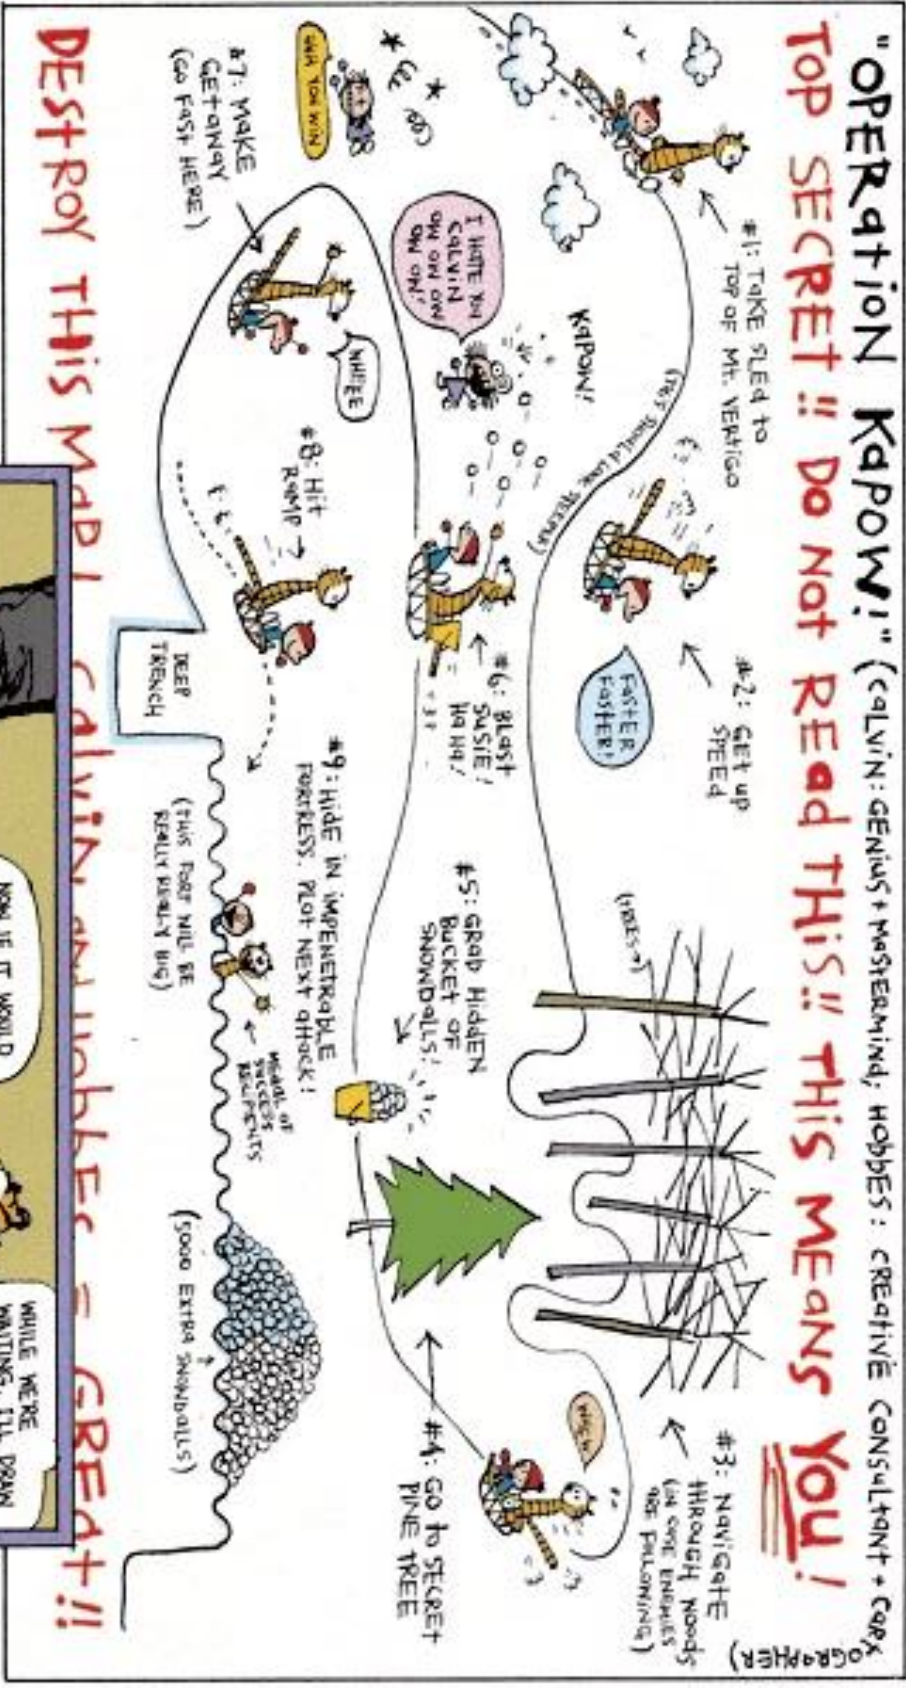 "OPERATION KAPOW!" (CALVIN: GENIUS + MASTERMIND; HOBBES: CREATIVE CONSULTANT + CARTOGRAPHER)
TOP SECRET!! DO NOT READ THIS!! THIS MEANS YOU!
#1: TAKE SLED TO
TOP OF MT. VERTIGO
(THIS SHOULD LOOK STEEPER)
#2: GET UP
SPEED
FASTER
FASTER!
(TREES→)
#3: NAVIGATE
THROUGH WOODS
(IN CASE ENEMIES
ARE FOLLOWING)
#4: GO TO SECRET
PINE TREE
#5: GRAB HIDDEN
BUCKET OF
SNOWBALLS!
#6: BLAST
SUSIE!
HA HA!
KAPOW!
I HATE YOU
CALVIN
OW OW OW
OW OW!
YOU WIN
#7: MAKE
GETAWAY
(GO FAST HERE)
WHEEE
#8: HIT
RAMP
DEEP
TRENCH
#9: HIDE IN IMPENETRABLE
FORTRESS. PLOT NEXT ATTACK!
(THIS FORT WILL BE
REALLY REALLY BIG)
MEDAL OF
SUCCESS
RECIPIENTS
(5000 EXTRA SNOWBALLS)
DESTROY THIS MAP! CALVIN AND HOBBES = GREAT!!
NOW IF IT WOULD
WHILE WE'RE
WAITING, I'LL DRAW